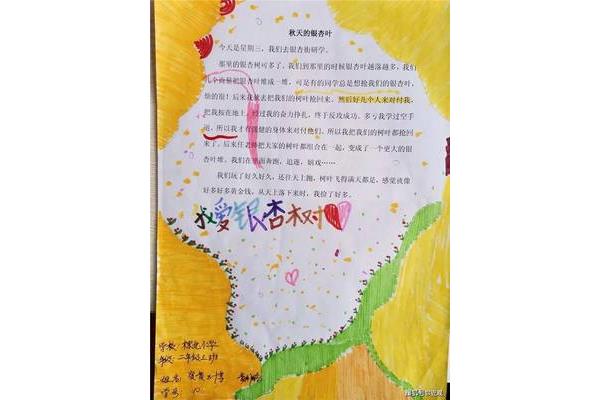 秋天的银杏叶
今天是星期三，我们去银杏街研学。
那里的银杏树可多了。我们到那里的时候银杏叶越落越多，我们
几个 把银杏叶堆成一堆，可是有的同学总是想抢我们的银杏叶，
烦的很！后来我 去把我们的树叶抢回来。然后好几个人来对付我，
把我按在地上。经过我的奋力挣扎，终于反攻成功。多亏我学过空手
道，所以我才有强健的身体来对付他们。所以我把我们的树都抢回
来了。后来任老师把大家的树叶都组合在一起，变成了一个更大的银
杏叶堆。我们在里面奔跑，追逐，嬉戏……
我们玩了好久好久，还往天上抛，树叶飞得满天都是，感觉就像
好多好多黄金钱，从天上落下来时，我捡了好多。
我爱银杏树
学校 小学
年级 二年级2班
姓名
学号
搜狐号